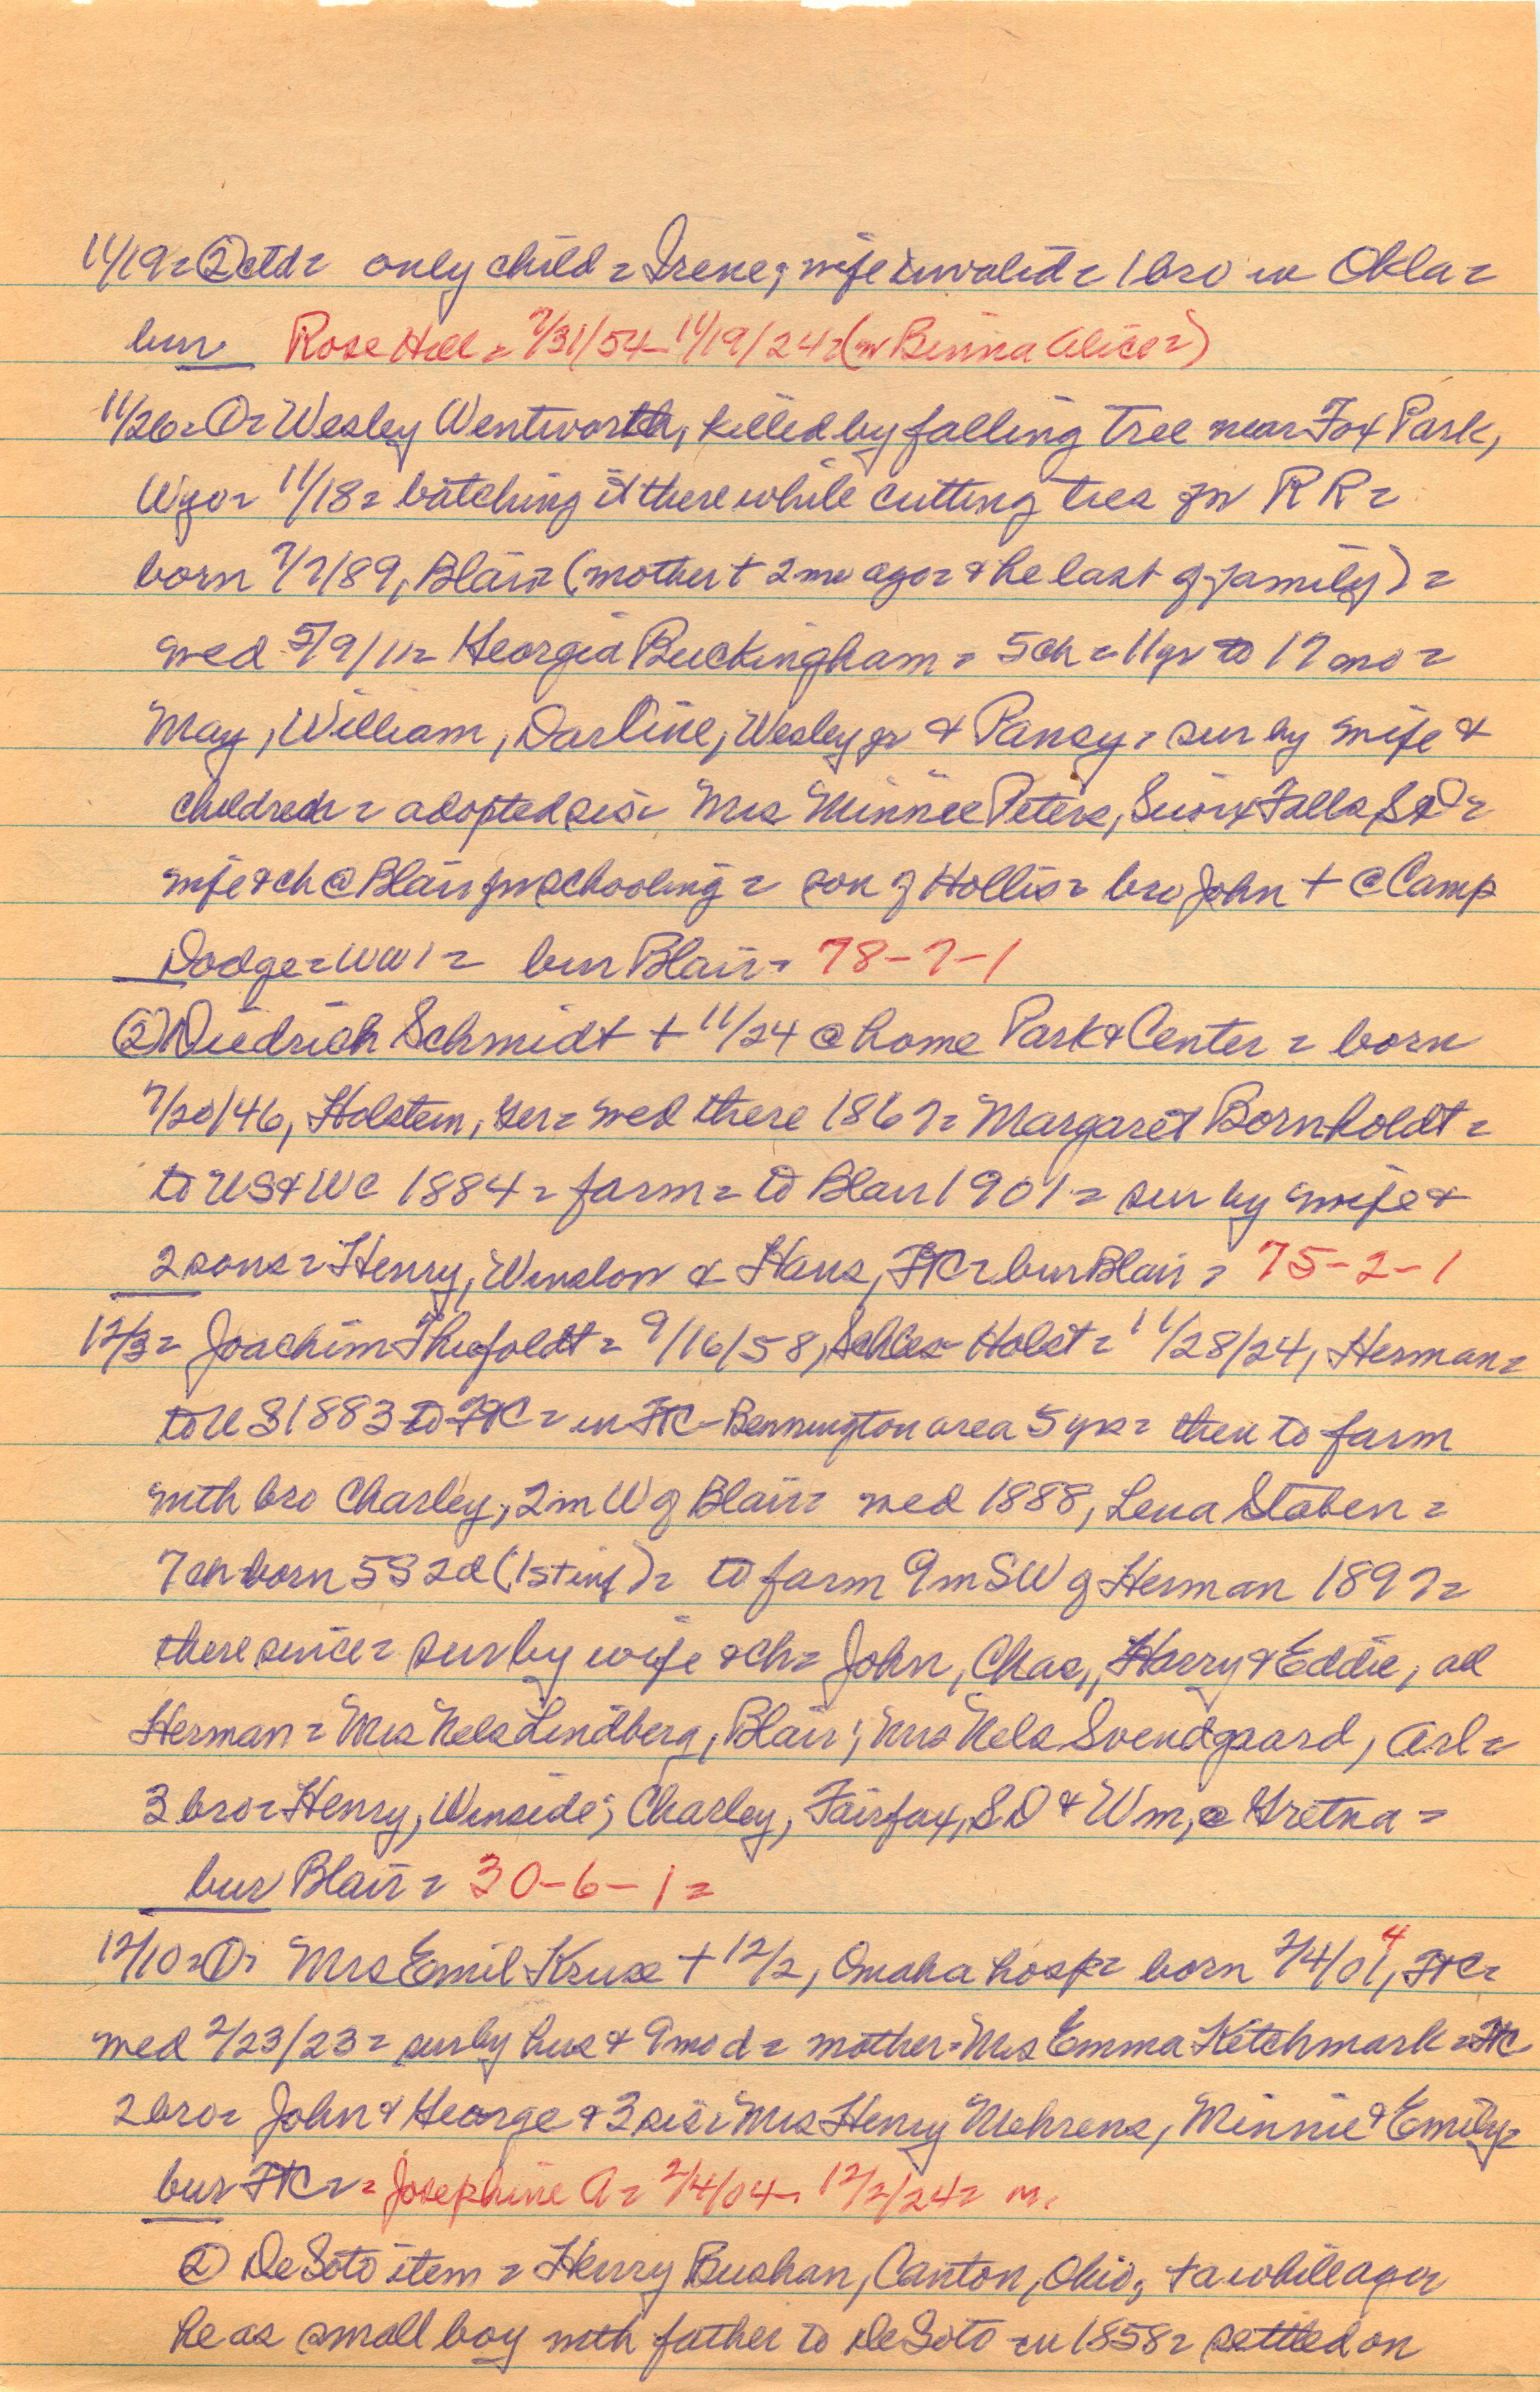 11/19= ② ctd= only child= Irene; wife invalid= 1 bro in Okla=
bur Rose Hill= 7/31/54- 11/19/24= (w Binna Alice=)
11/26= ①= Wesley Wentworth, killed by falling tree near Fox Park,
Wyo= 11/18= batching it there while cutting ties for RR=
born 7/7/89, Blair= (mother † 2 mo ago= & he last of family)=
wed 5/9/11= Georgia Buckingham= 5 ch= 11 yr to 17 mo=
May, William, Darline, Wesley jr & Pansy= sur by wife &
children= adopted sis= Mrs Minnee Peters, Sioux Falls, SD=
wife & ch @ Blair for schooling= son of Hollis= bro John † @ Camp
Dodge= WW1= bur Blair= 78-7-1
② Diedrich Schmidt † 11/24 @ home Park & Center= born
7/20/46, Holstein, Ger= wed there 1867= Margaret Bornholdt=
to US & WC 1884= farm= to Blair 1901= sur by wife &
2 sons= Henry, Winslow & Hans, FtC= bur Blair= 75-2-1
12/3= Joachim Thiefoldt= 9/16/58, Schles- Holst= 11/28/24, Herman=
to US 1883 to FtC= in FtC- Bennington area 5 yrs= then to farm
with bro Charley, 2 m W of Blair= wed 1888, Lena Staben=
7 ch born 5S 2d (1st inf)= to farm 9 m SW of Herman 1897=
there since= sur by wife & ch= John, Chas, Harry & Eddie, all
Herman= Mrs Nels Lindberg, Blair; Mrs Nels Svendgaard, Arl=
3 bro= Henry, Winside; Charley, Fairfax, SD & Wm, @ Gretna=
bur Blair= 30-6-1=
12/10= ①= Mrs Emil Kruse † 12/2, Omaha hosp= born 2/4/01, 4 FtC=
wed 2/23/23= sur by hus & 9 mo d= mother= Mrs Emma Ketchmark= FtC
2 bro= John & George & 3 sis= Mrs Henry Mehrens, Minnie & Emily=
bur FtC== Josephine A= 2/4/04- 12/2/24= m.
② DeSoto item= Henry Bushan, Canton, Ohio, † a while ago=
he as small boy with father to DeSoto in 1858= settled on